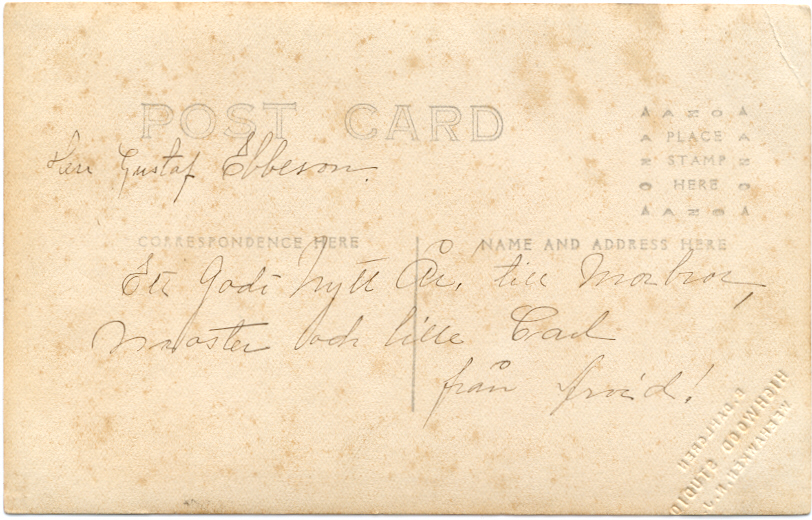 POST CARD
A A N O A
A PLACE A
N STAMP N
O HERE O
A A N O A
Herr Gustaf Ebbeson.
CORRESPONDENCE HERE
NAME AND ADDRESS HERE
Ett Godt Nytt År, till Morbror,
Moster och lille Carl
från Arvid!
HIGHWOOD STUDIO